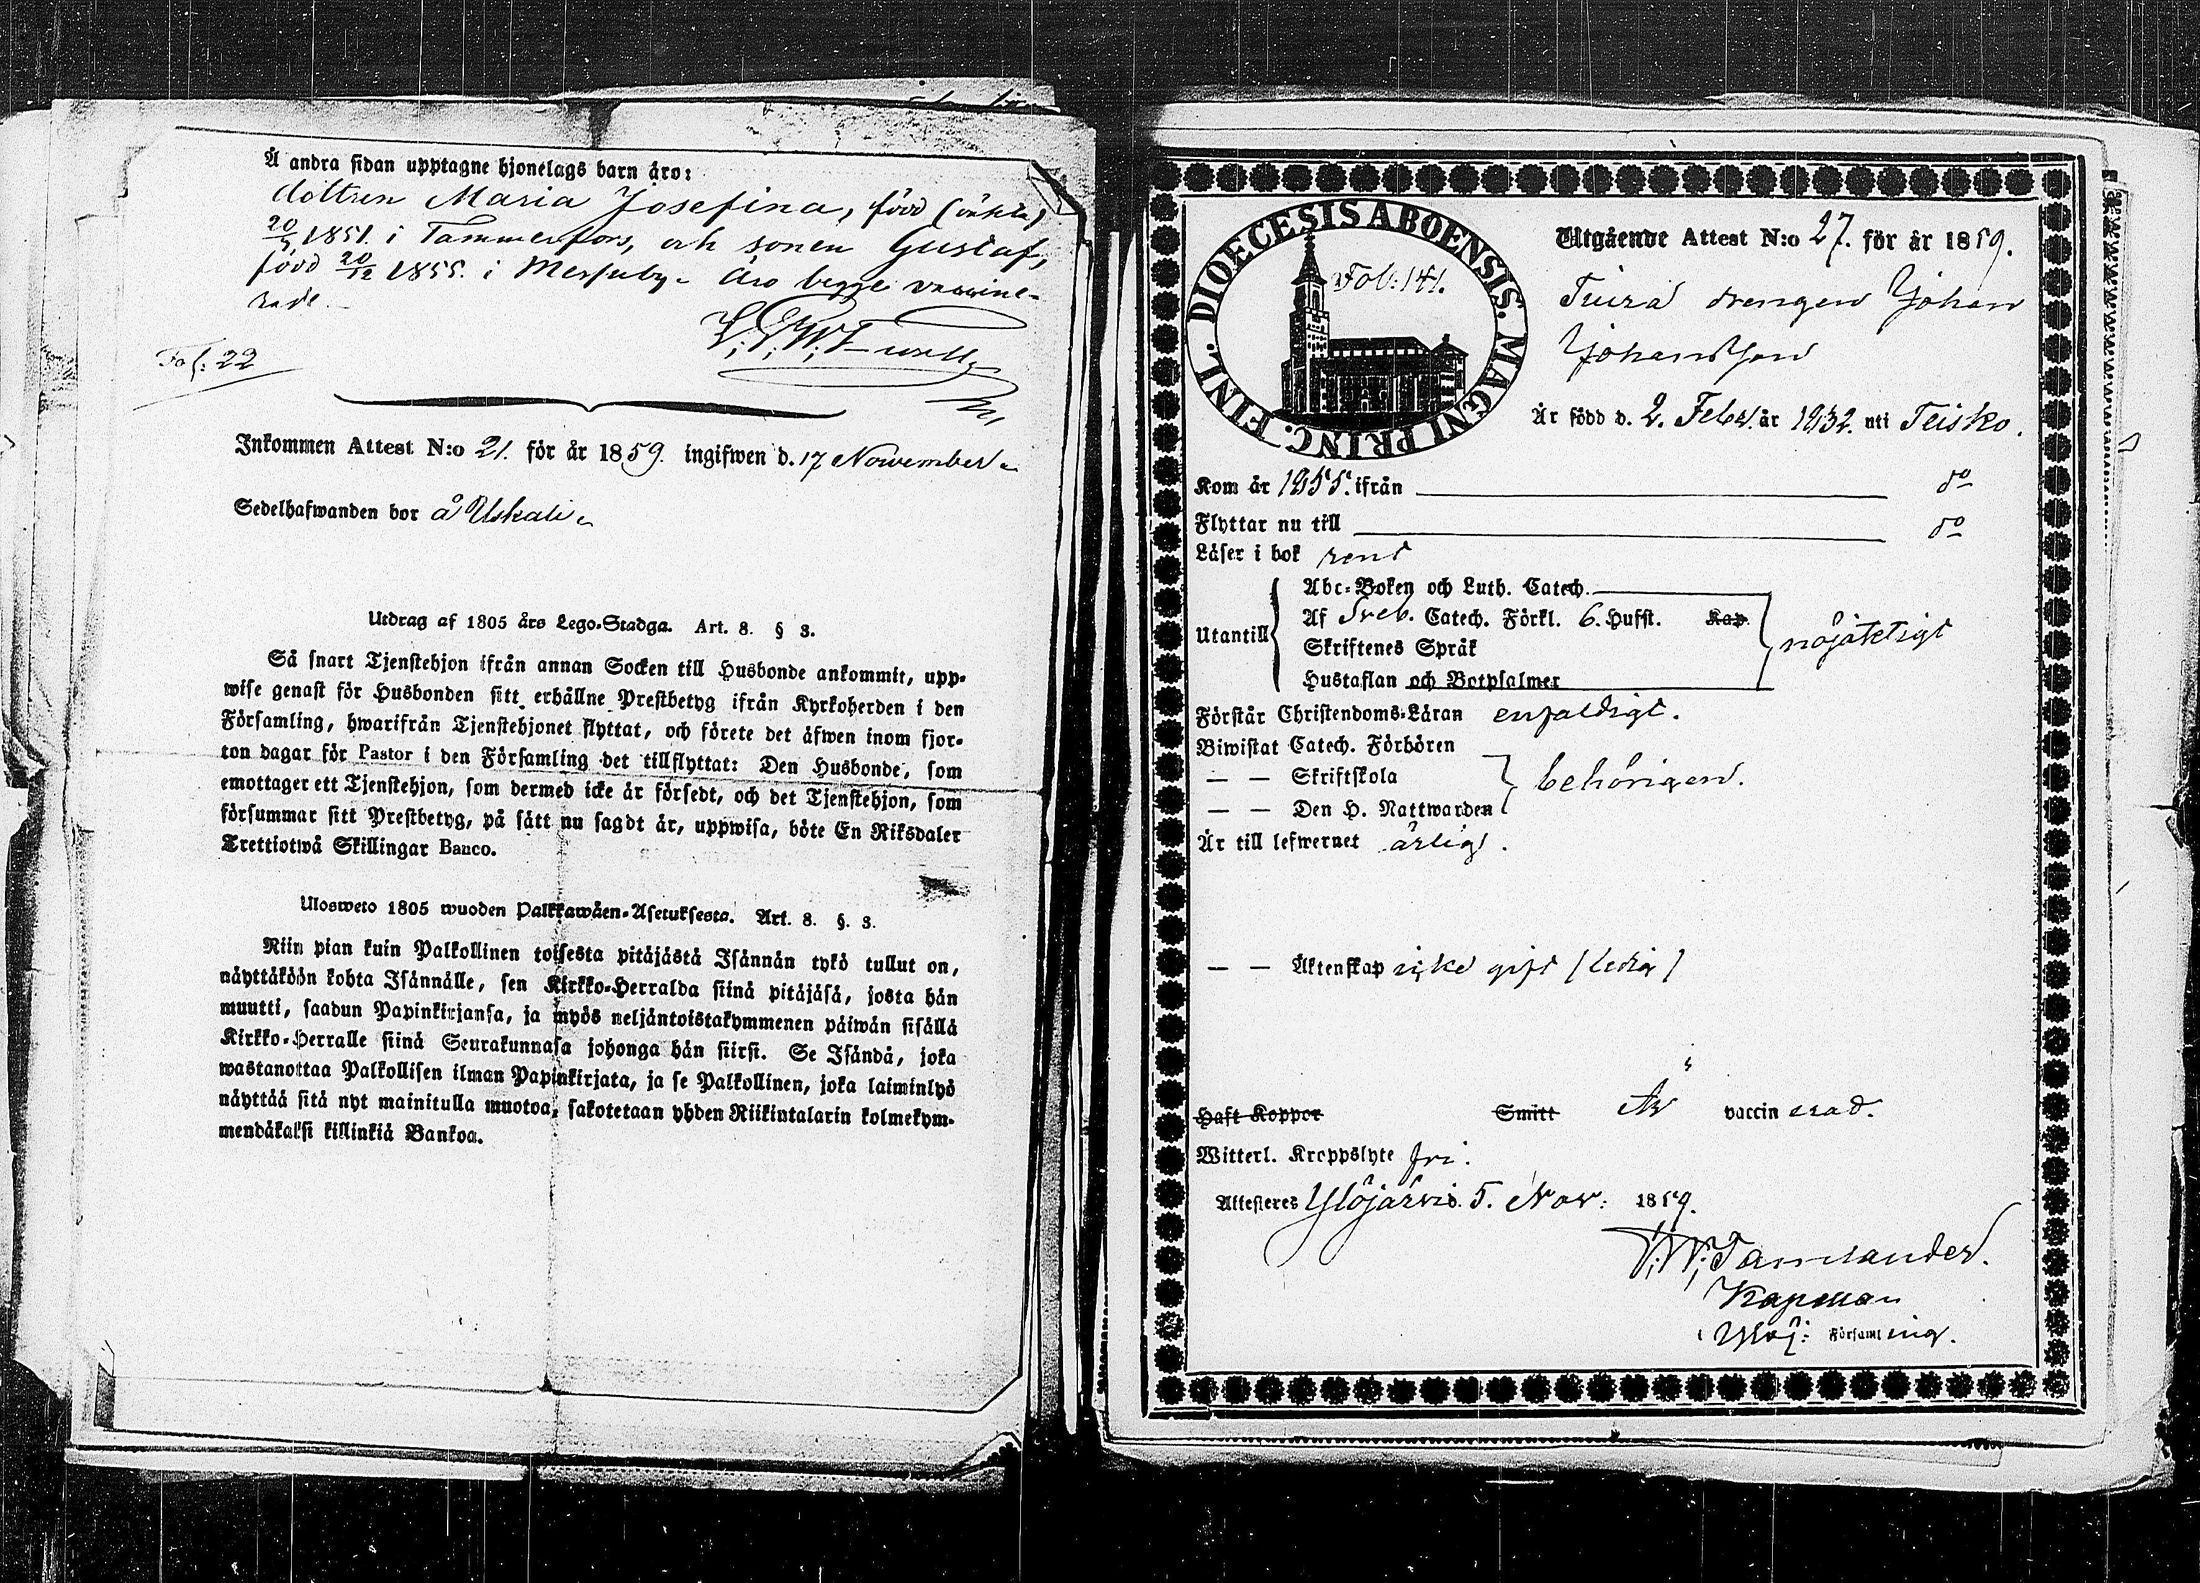 Å andra sidan upptagne hjonelags barn äro:
dottren Maria Josefina, född (oäkta)
20/7 1851. i Tammerfors, och sonen Gustaf,
född 20/12 1855. i Messuby. Äro begge vaccine-
rade.
Fol: 22
Inkommen Attest N:o 21. för år 1859. ingifwen d. 17 November
Sedelhafwanden bor å Uskali
Utdrag af 1805 års Lego-Stadga. Art. 8. § 3.
Så snart Tjenstehjon ifrån annan Socken till Husbonde ankommit, upp-
wise genast för Husbonden sitt erhållne Prestbetyg ifrån Kyrkoherden i den
Församling, hwarifrån Tjenstehjonet flyttat, och förete det äfwen inom fjor-
ton dagar för Pastor i den Församling det tillflyttat: Den Husbonde, som
emottager ett Tjenstehjon, som dermed icke är försedt, och det Tjenstehjon, som
försummar sitt Prestbetyg, på sätt nu sagdt är, uppwisa, böte En Riksdaler
Trettiotwå Skillingar Banco.
Ulosweto 1805 wuoden Palkkawäen-Asetuksesta. Art. 8. §. 3.
Niin pian kuin Palkollinen toisesta pitäjästä Isännän tykö tullut on,
näyttäköön kohta Isännälle, sen Kirkko-Herralda siinä pitäjäsä, josta hän
muutti, saadun Papinkirjansa, ja myös neljäntoistakymmenen päiwän sisällä
Kirkko-Herralle siinä Seurakunnasa johonga hän siirsi. Se Isändä, joka
wastanottaa Palkollisen ilman Papinkirjata, ja se Palkollinen, joka laiminlyö
näyttää sitä nyt mainitulla muotoa, sakotetaan yhden Riikintalarin kolmekym-
mendäkaksi killinkiä Bankoa.
DIOECESIS ABOENSIS. MAGNI PRINC. FINL.
Fol: 141.
Utgående Attest N:o 27. för år 1859.
drengen Johan
Johansson
Är född d. 2. Febr. år 1832. uti Teisko.
Kom år 1855. ifrån do
Flyttar nu till do
Läser i bok rent
Abc-Boken och Luth. Catech.
Utantill Af Sveb. Catech. Förkl. 6. Hufst. Kap. nöjaktigt
Skriftenes Språk
Hustaflan och Botpsalmer
Förstår Christendoms-Läran enfaldigt.
Biwistat Catech. Förhören
— — Skriftskola behörigen.
— — Den H. Nattwarden
Är till lefwernet ärligt.
— — Äktenskap icke gift (ledig)
Haft Koppor Smitt Är vaccinerad.
Witterl. Kroppslyte fri.
Attesteres Ylöjärvi. 5. Nov: 1859.
Kapellan
i Ylöj: Församling.